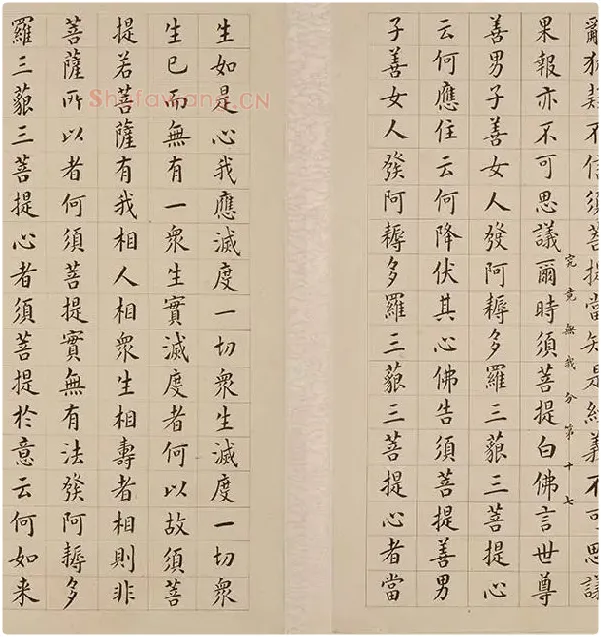 亂狐疑不信須菩提當知是經義不可思議
究竟無我分第十七
果報亦不可思議爾時須菩提白佛言世尊
善男子善女人發阿耨多羅三藐三菩提心
云何應住云何降伏其心佛告須菩提善男
子善女人發阿耨多羅三藐三菩提心者當
生如是心我應滅度一切衆生滅度一切衆
生已而無有一衆生實滅度者何以故須菩
提若菩薩有我相人相衆生相壽者相則非
菩薩所以者何須菩提實無有法發阿耨多
羅三藐三菩提心者須菩提於意云何如来
Shufawang.CN